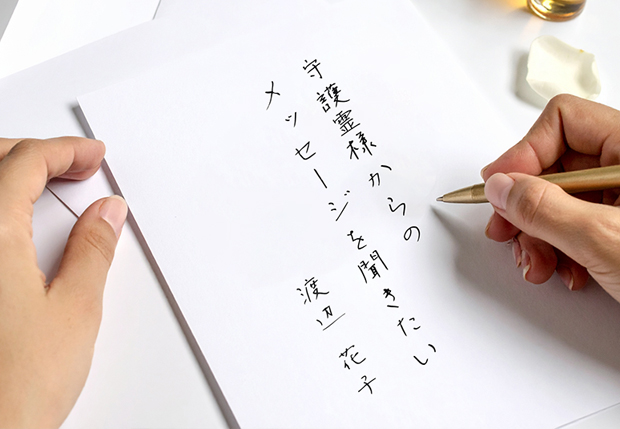 守護霊様からの
メッセージを聞きたい
渡辺 花子